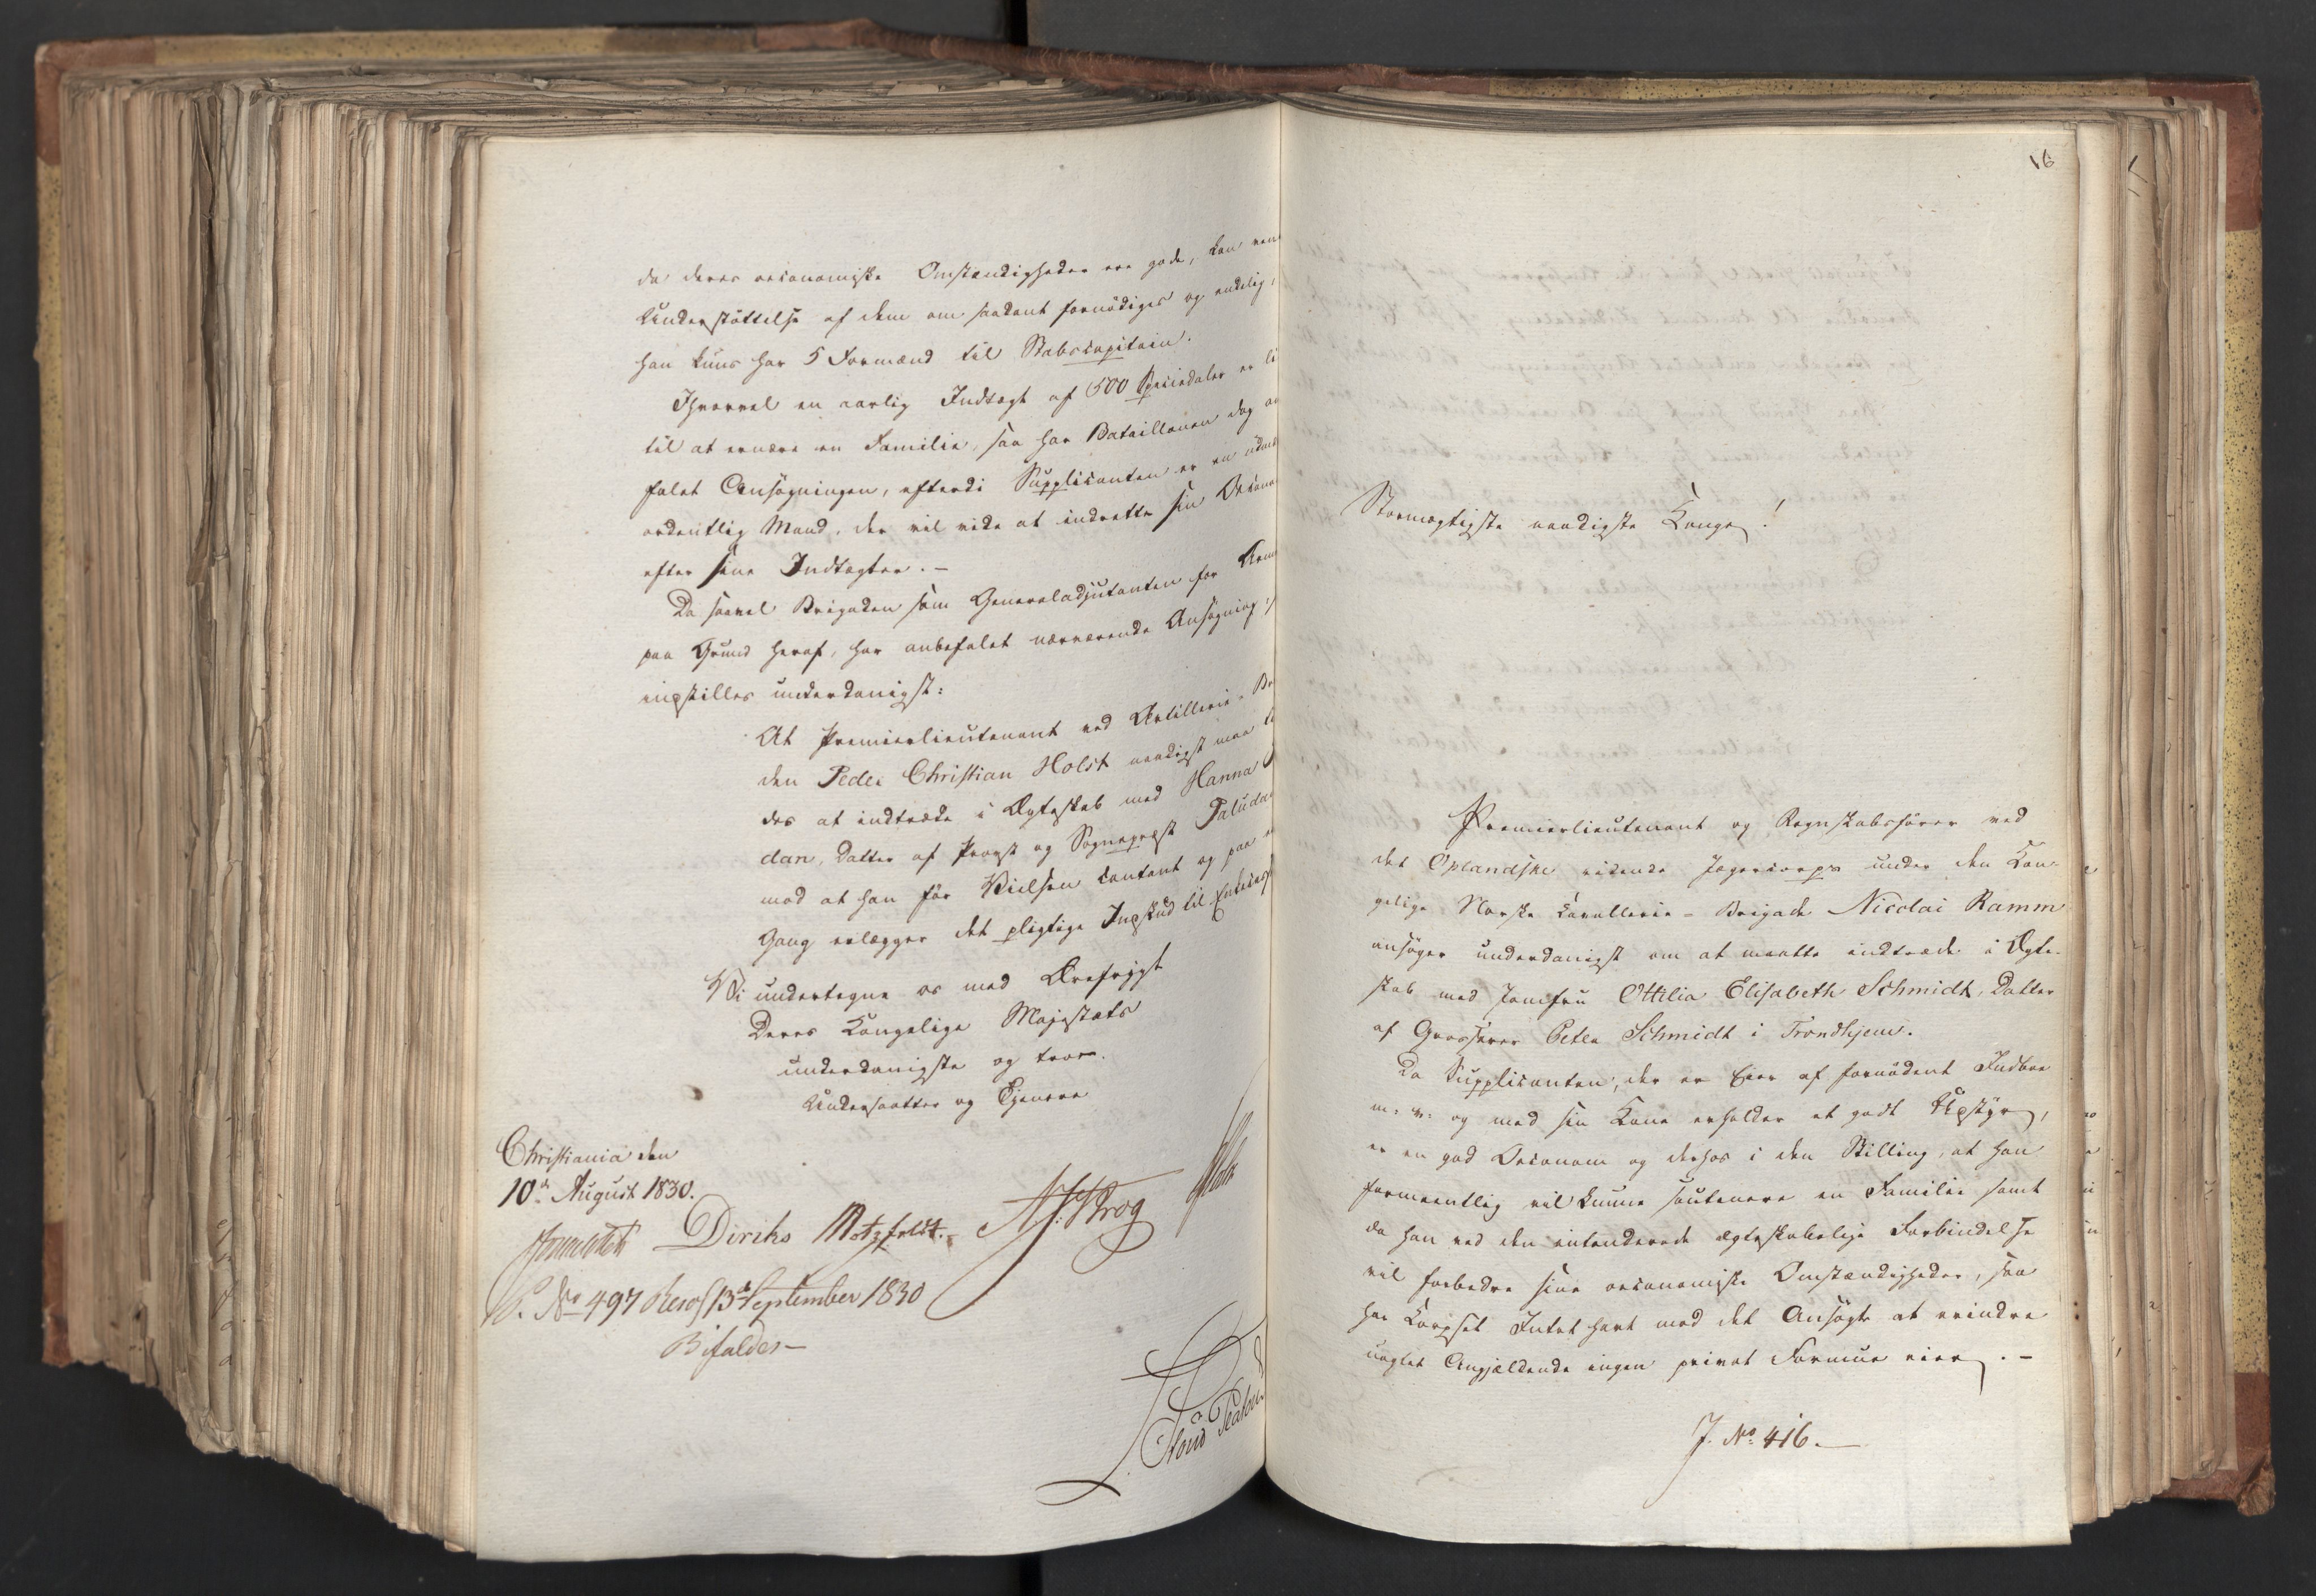 da deres oeconomiske Omstændigheder ere gode, kan
Understøttelse af dem om saadant fornødiges og endelig,
han kuns har 5 Formænd til Stabscapitain.
Ihvorvel en aarlig Indtægt af 500 Speciedaler er
til at ernære en Familie, saa har Bataillonen dog
falet Ansøgningen, efterdi Supplicanten er en
ordentlig Mand, der vil vide at indrette sin
efter sine Indtægter. –
Da saavel Brigaden som Generaladjutanten for
paa Grund heraf, har anbefalet nærværende Ansøgning,
indstilles underdanigst:
At Premierlieutenant ved Artillerie-
den Peder Christian Holst naadigst maa
des at indtræde i Ægteskab med Hanna
dan, Datter af Provst og Sognepræst
mod at han før Vielsen contant og paa
Gang erlægger det pligtige Indskud til
Vi undertegne os med Ærefrygt
Deres Kongelige Majestæts
underdanigste og troe
Undersaatter og Tjenere
Christiania den
10de August 1830.
Diriks Motzfeldt. Krog Holst
P. No 497 Resol 13de September 1830
Bifaldes –
16
Stormægtigste naadigste Konge!
Premierlieutenant og Regnskabsfører ved
det Oplandske ridende Jægercorps under den Kon-
gelige Norske Cavallerie-Brigade Nicolai Ramm
ansøger underdanigst om at maatte indtræde i Ægte-
skab med Jomfru Ottilia Elisabeth Schmidt, Datter
af Grosserer Peter Schmidt i Trondhjem.
Da Supplicanten, der er Eier af fornødent Indboe
m: v: og med sin Kone erholder et godt Udstyr,
er en god Oeconom og derhos i den Stilling, at han
formeentlig vil kunne soutenere en Familie samt
da han ved den intenderede ægteskabelige Forbindelse
vil forbedre sine oeconomiske Omstændigheder, saa
har Corpset Intet havt mod det Ansøgte at erindre
uagtet Angjældende ingen privat Formue eier. –
J. No 416. –